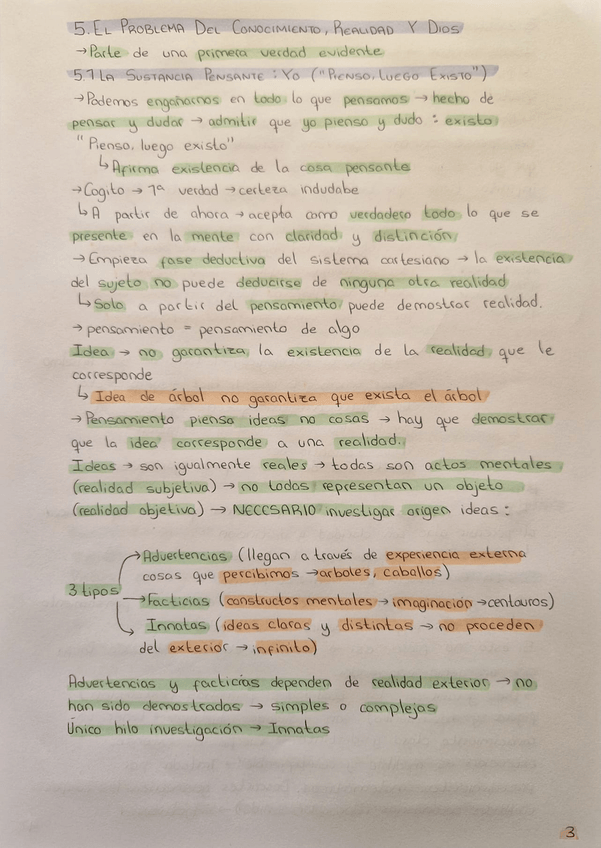 5. El Problema Del Conocimiento, Realidad Y Dios
→Parte de una primera verdad evidente
5.1 La Sustancia Pensante: Yo ("Pienso, luego Existo")
→Podemos engañarnos en todo lo que pensamos → hecho de
pensar y dudar → admitir que yo pienso y dudo : existo
"Pienso, luego existo"
↳Afirma existencia de la cosa pensante
→Cogito → 1ª verdad → certeza indudabe
↳A partir de ahora → acepta como verdadero todo lo que se
presente en la mente con claridad y distinción.
→Empieza fase deductiva del sistema cartesiano → la existencia
del sujeto no puede deducirse de ninguna otra realidad
↳Solo a partir del pensamiento puede demostrar realidad.
→ pensamiento = pensamiento de algo
Idea → no garantiza la existencia de la realidad que le
corresponde
↳ Idea de árbol no garantiza que exista el árbol
→Pensamiento piensa ideas no cosas → hay que demostrar
que la idea corresponde a una realidad.
Ideas → son igualmente reales → todas son actos mentales
(realidad subjetiva) → no todas representan un objeto
(realidad objetiva) → NECESARIO investigar origen ideas :
→Advertencias (llegan a través de experiencia externa
cosas que percibimos →arboles, caballos)
3 tipos → Facticias (constructos mentales → imaginación →centauros)
→ Innatas (ideas claras y distintas → no proceden
del exterior → infinito)
Advertencias y facticias dependen de realidad exterior → no
han sido demostradas → simples o complejas
Único hilo investigación → Innatas
3